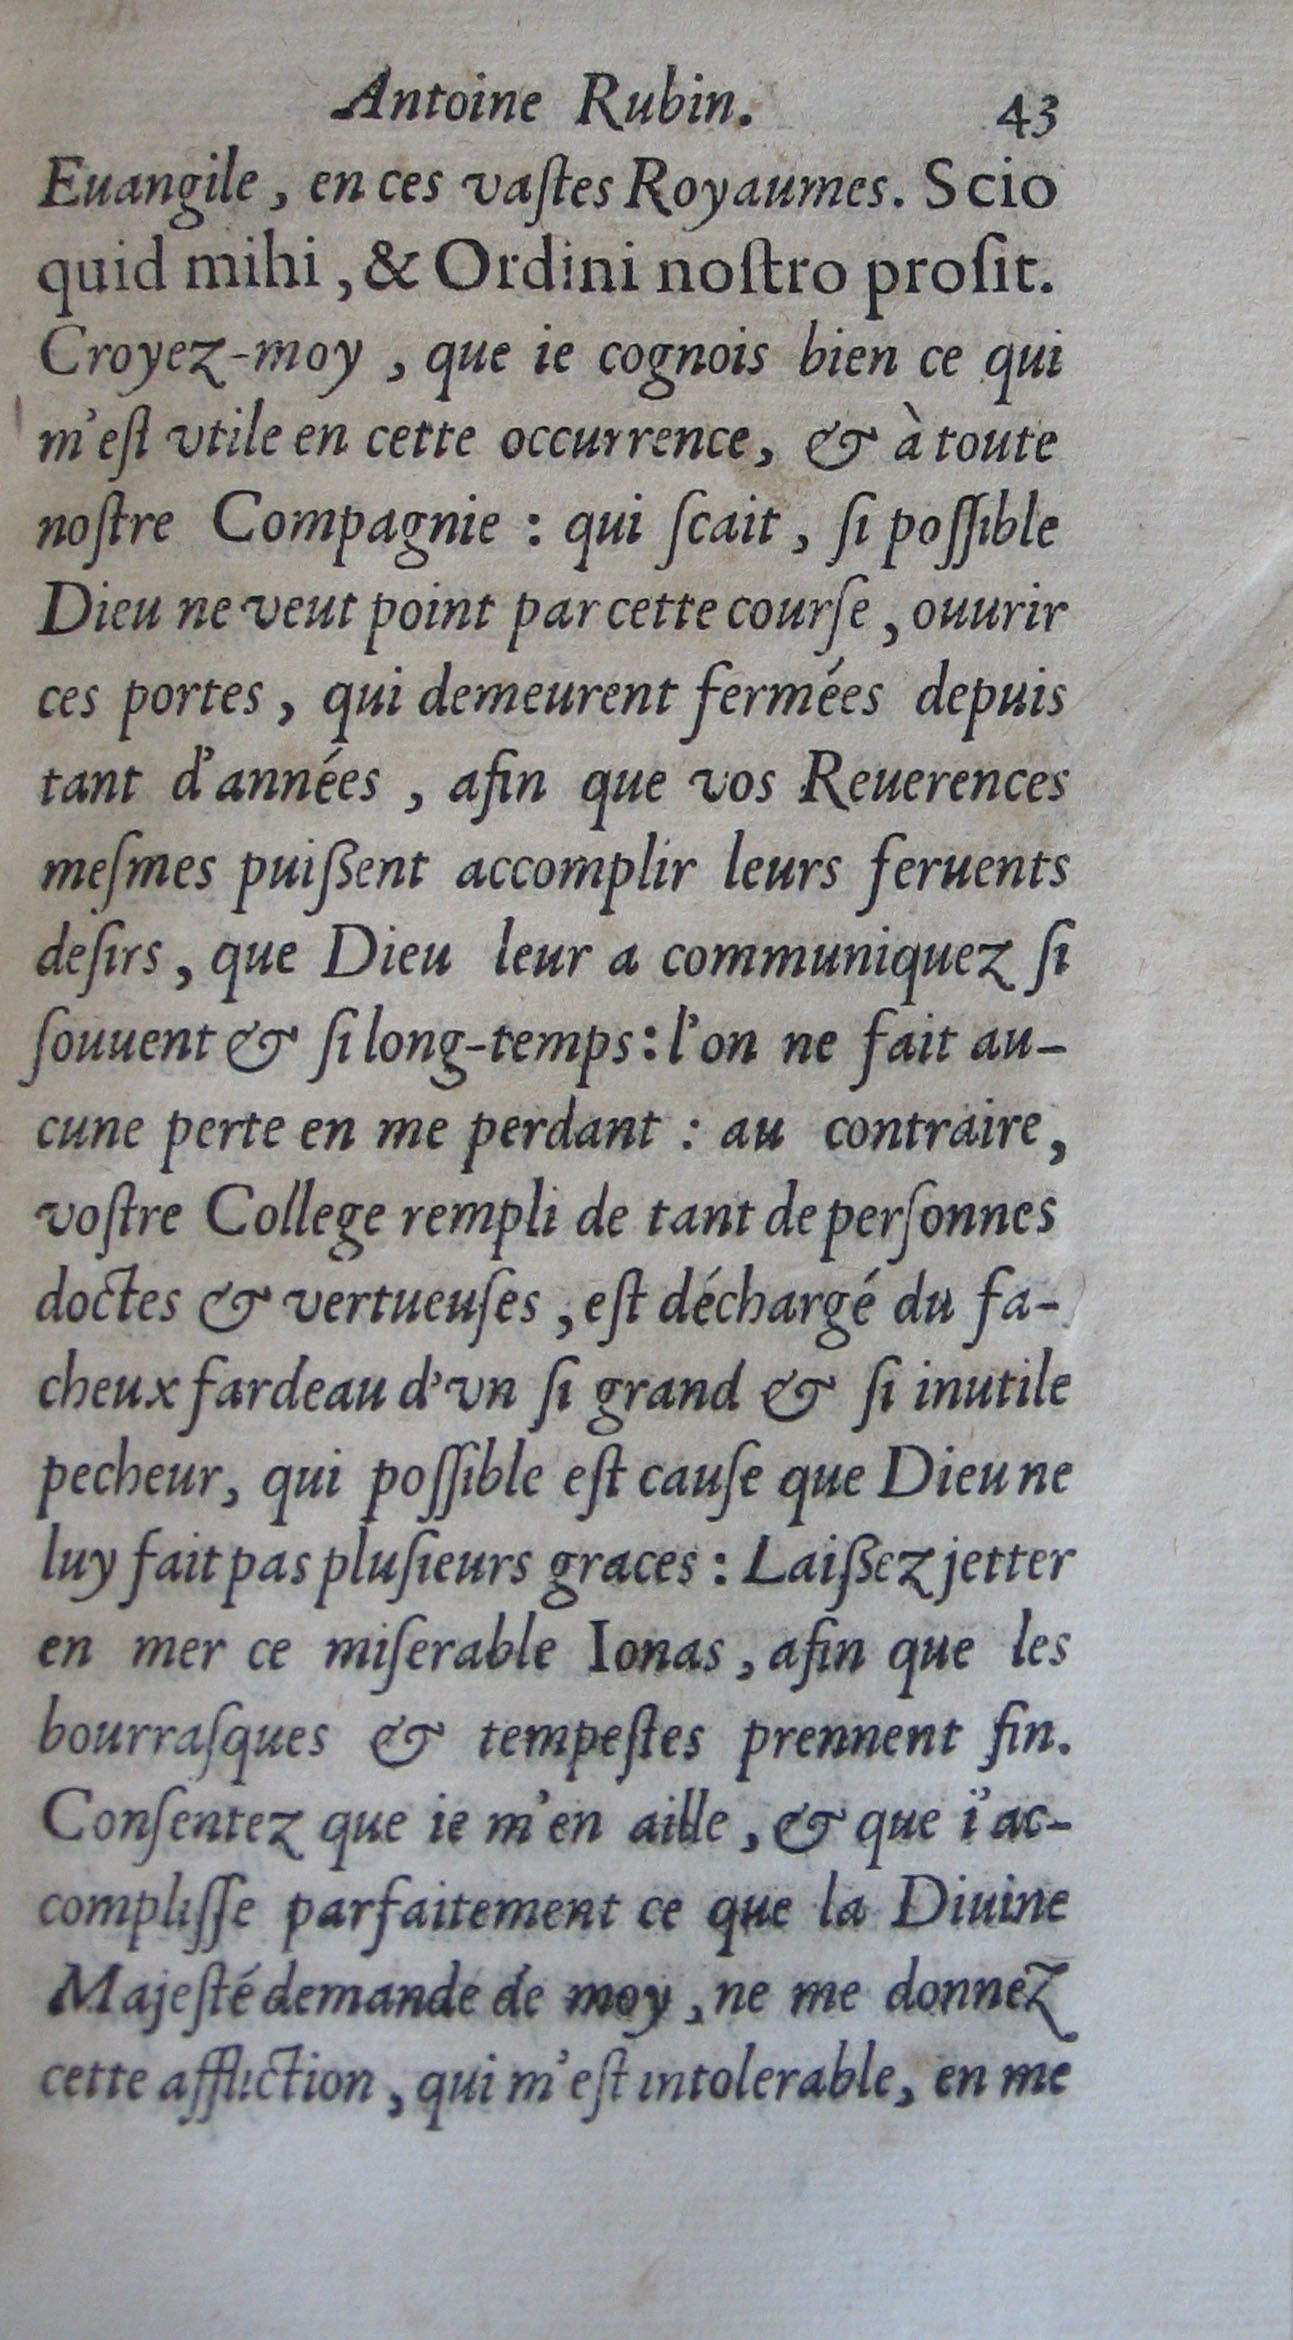 Antoine Rubin. 43
Euangile, en ces vaſtes Royaumes. Scio
quid mihi, & Ordini noſtro proſit.
Croyez-moy, que ie cognois bien ce qui
m'eſt vtile en cette occurrence, & à toute
noſtre Compagnie : qui ſcait, ſi poſſible
Dieu ne veut point par cette courſe, ouurir
ces portes, qui demeurent fermées depuis
tant d'années, afin que vos Reuerences
meſmes puißent accomplir leurs feruents
deſirs, que Dieu leur a communiquez ſi
ſouuent & ſi long-temps : l'on ne fait au-
cune perte en me perdant : au contraire,
voſtre College rempli de tant de perſonnes
doctes & vertueuſes, eſt déchargé du fa-
cheux fardeau d'vn ſi grand & ſi inutile
pecheur, qui poſſible eſt cauſe que Dieu ne
luy fait pas pluſieurs graces : Laißez jetter
en mer ce miſerable Ionas, afin que les
bourraſques & tempeſtes prennent fin.
Conſentez que ie m'en aille, & que i'ac-
compliſſe parfaitement ce que la Diuine
Majeſté demande de moy, ne me donnez
cette affliction, qui m'eſt intolerable, en me